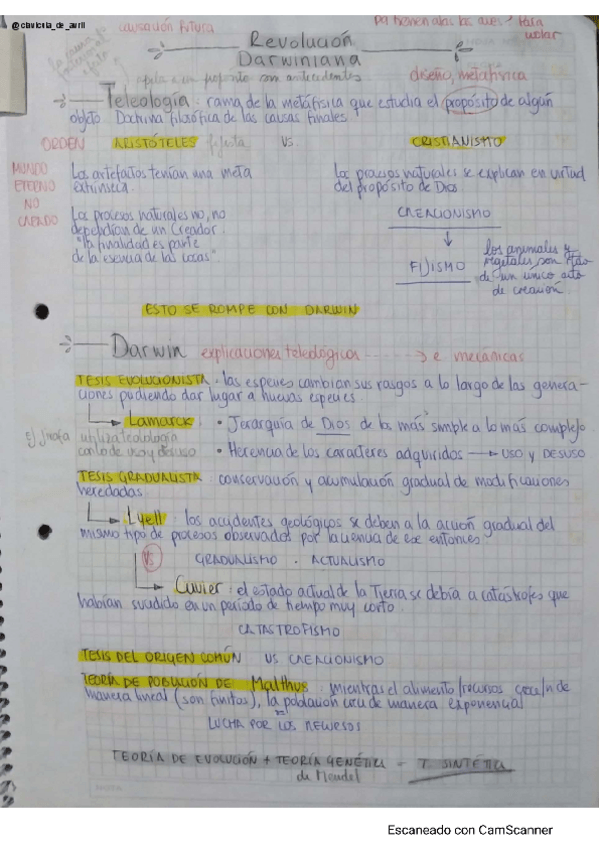 @clavicula_de_avril
causación futura
pa tienen alas las aves? Para
volar
la causa es
posterior al
efecto
Revolución
Darwiniana
apela a un propósito son antecedentes
diseño, metafísica
Teleología: rama de la metáfisica que estudia el propósito de algún
objeto. Doctrina filosófica de las causas finales.
ORDEN
ARISTÓTELES fijista vs CRISTIANISMO
MUNDO
ETERNO
NO
CREADO
Los artefactos tenían una meta
extrínseca.
Los procesos naturales no, no
dependían de un Creador.
"la finalidad es parte
de la esencia de las cosas".
Los procesos naturales se explican en virtud
del propósito de Dios.
CREACIONISMO
FIJISMO
los animales y
vegetales son
de un único acto
de creación.
ESTO SE ROMPE CON DARWIN
Darwin explicaciones teleológicas -----→ e mecánicas
TESIS EVOLUCIONISTA: las especies cambian sus rasgos a lo largo de las genera-
ciones pudiendo dar lugar a nuevas especies.
Lamarck: • Jerarquía de Dios de los más simple a lo más complejo.
Ej Jirafa utiliza teleología
con lo de uso y desuso
• Herencia de los caracteres adquiridos → USO Y DESUSO
TESIS GRADUALISTA: conservación y acumulación gradual de modificaciones
heredadas
Lyell: los accidentes geológicos se deben a la acción gradual del
mismo tipo de procesos observados por la ciencia de ese entonces.
VS
GRADUALISMO · ACTUALISMO
Cuvier: el estado actual de la Tierra se debía a catástrofes que
habían sucedido en un período de tiempo muy corto.
CATASTROFISMO
TESIS DEL ORIGEN COMÚN VS CREACIONISMO
TEORÍA DE POBLACIÓN DE Malthus: mientras el alimento/recursos crece/n de
manera lineal (son finitos), la población crece de manera exponencial
LUCHA POR LOS RECURSOS
TEORÍA DE EVOLUCIÓN + TEORÍA GENÉTICA = T. SINTÉTICA
de Mendel
NOTA
Escaneado con CamScanner